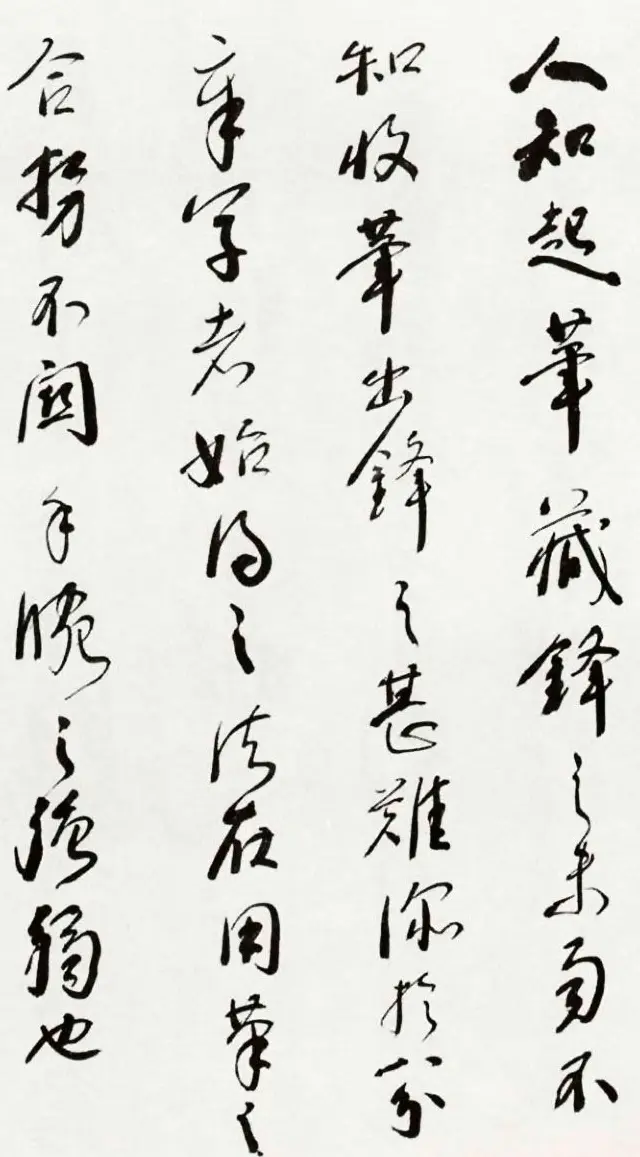 人知起筆藏鋒之未易不
知收筆出鋒之甚難深於八分
章草者始得之法在用筆之
合勢不關手腕之強弱也